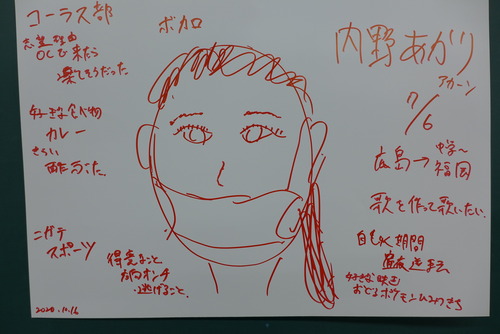 コーラス部
志望理由
OCで来たら
楽しそうだった
好きな食べ物
カレー
きらい
酢
ニガテ
スポーツ
得意なこと
方向オンチ
・逃げること。
2020.10.16
ボカロ
内野あがり
アカーン
7/6
広島→中学〜
福岡
歌を作って歌いたい。
自しゅく期間
昼夜逆転
好きな映画
おどるポケモンひみつきち